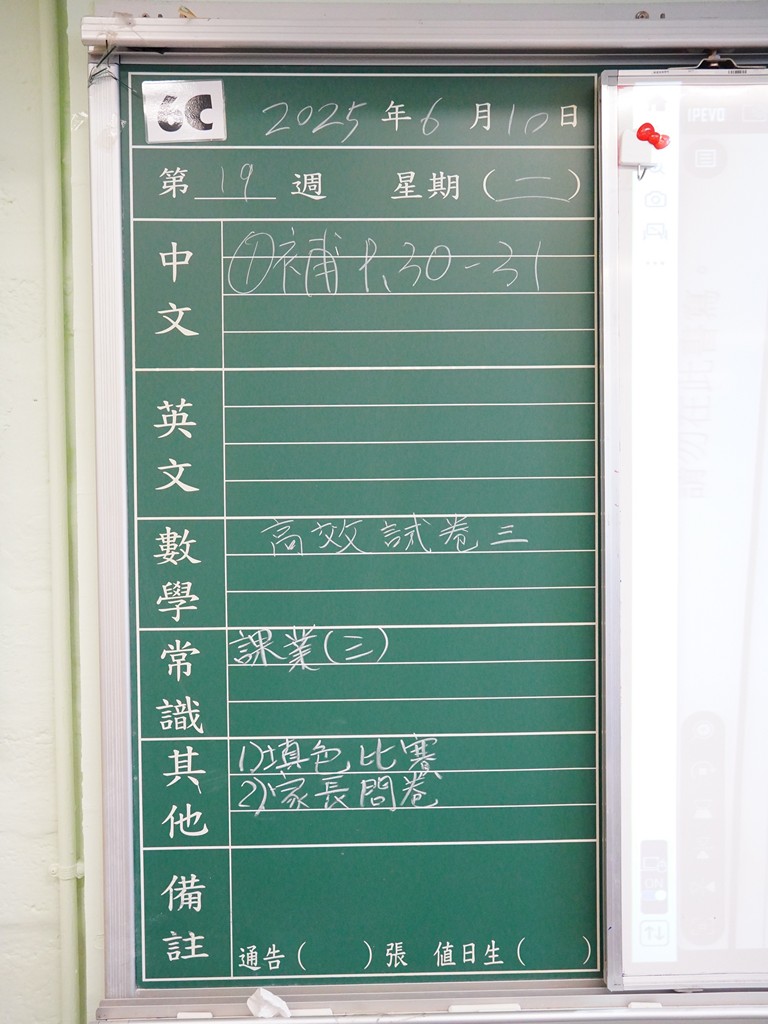 6C
2025年6月10日
第 19 週 星期(二)
中文
①補 P.30-31
英文
數學
高效試卷三
常識
課業(三)
其他
1)填色比賽
2)家長問卷
備註
通告( )張 值日生( )
IPEVO